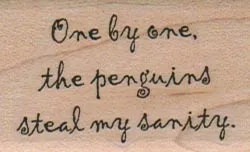 One by one,
the penguins
steal my sanity.